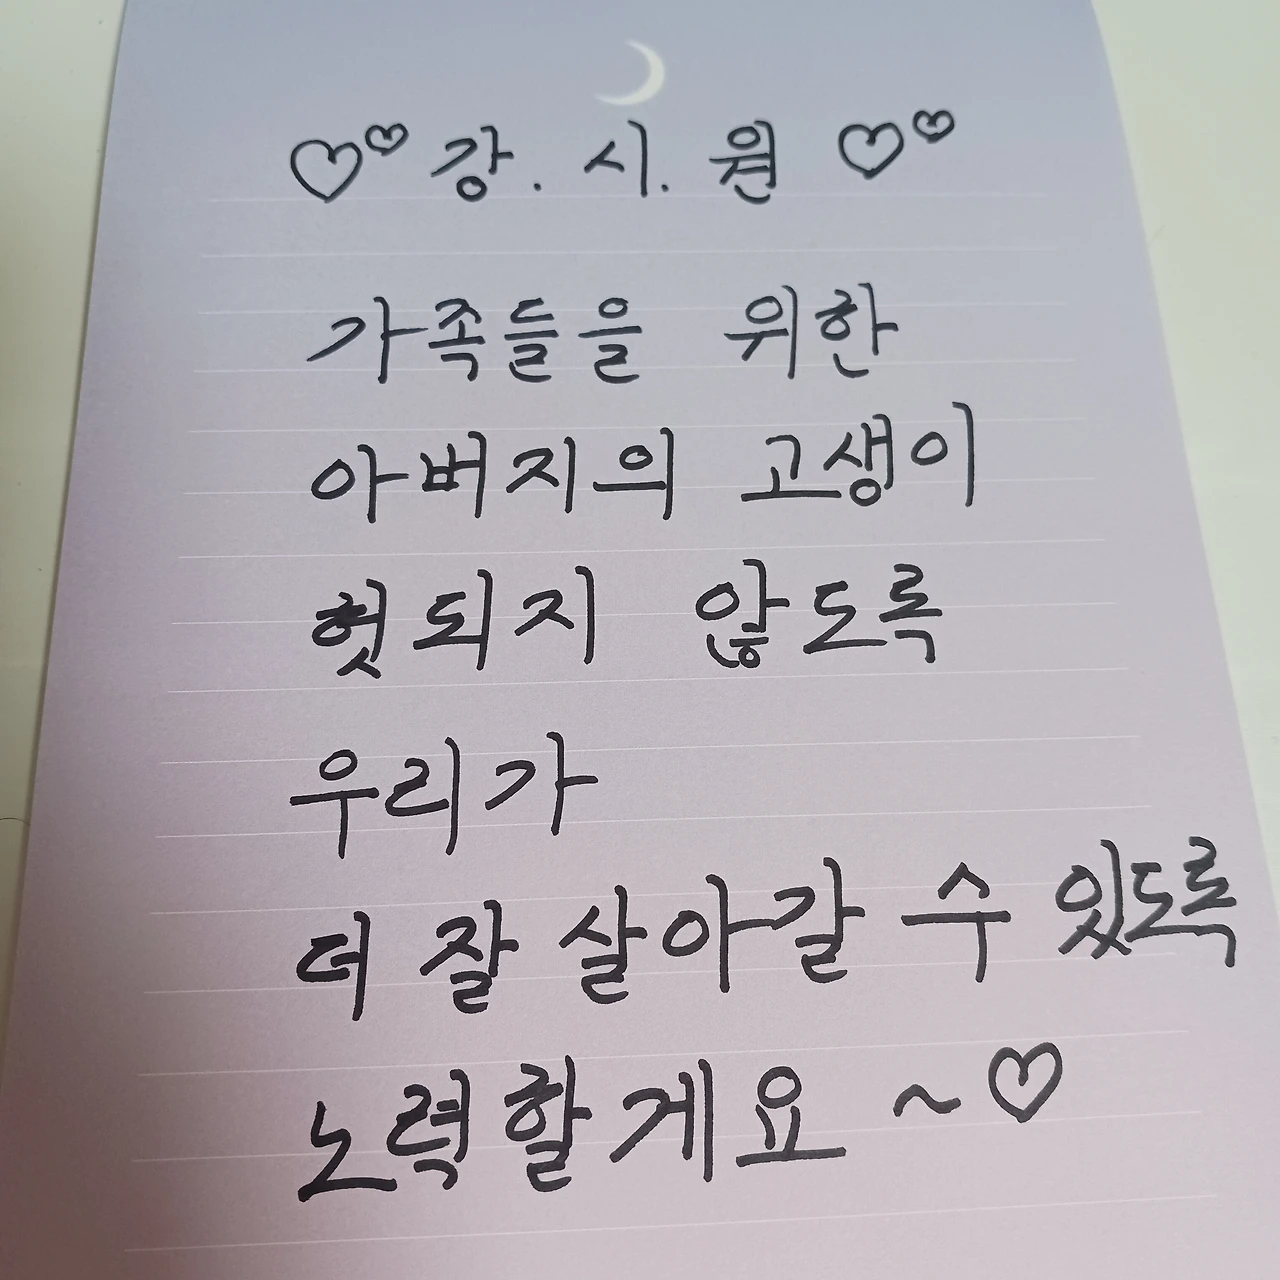 ♡♡ 강.시.원 ♡♡
가족들을 위한
아버지의 고생이
헛되지 않도록
우리가
더 잘 살아갈 수 있도록
노력할게요 ~♡